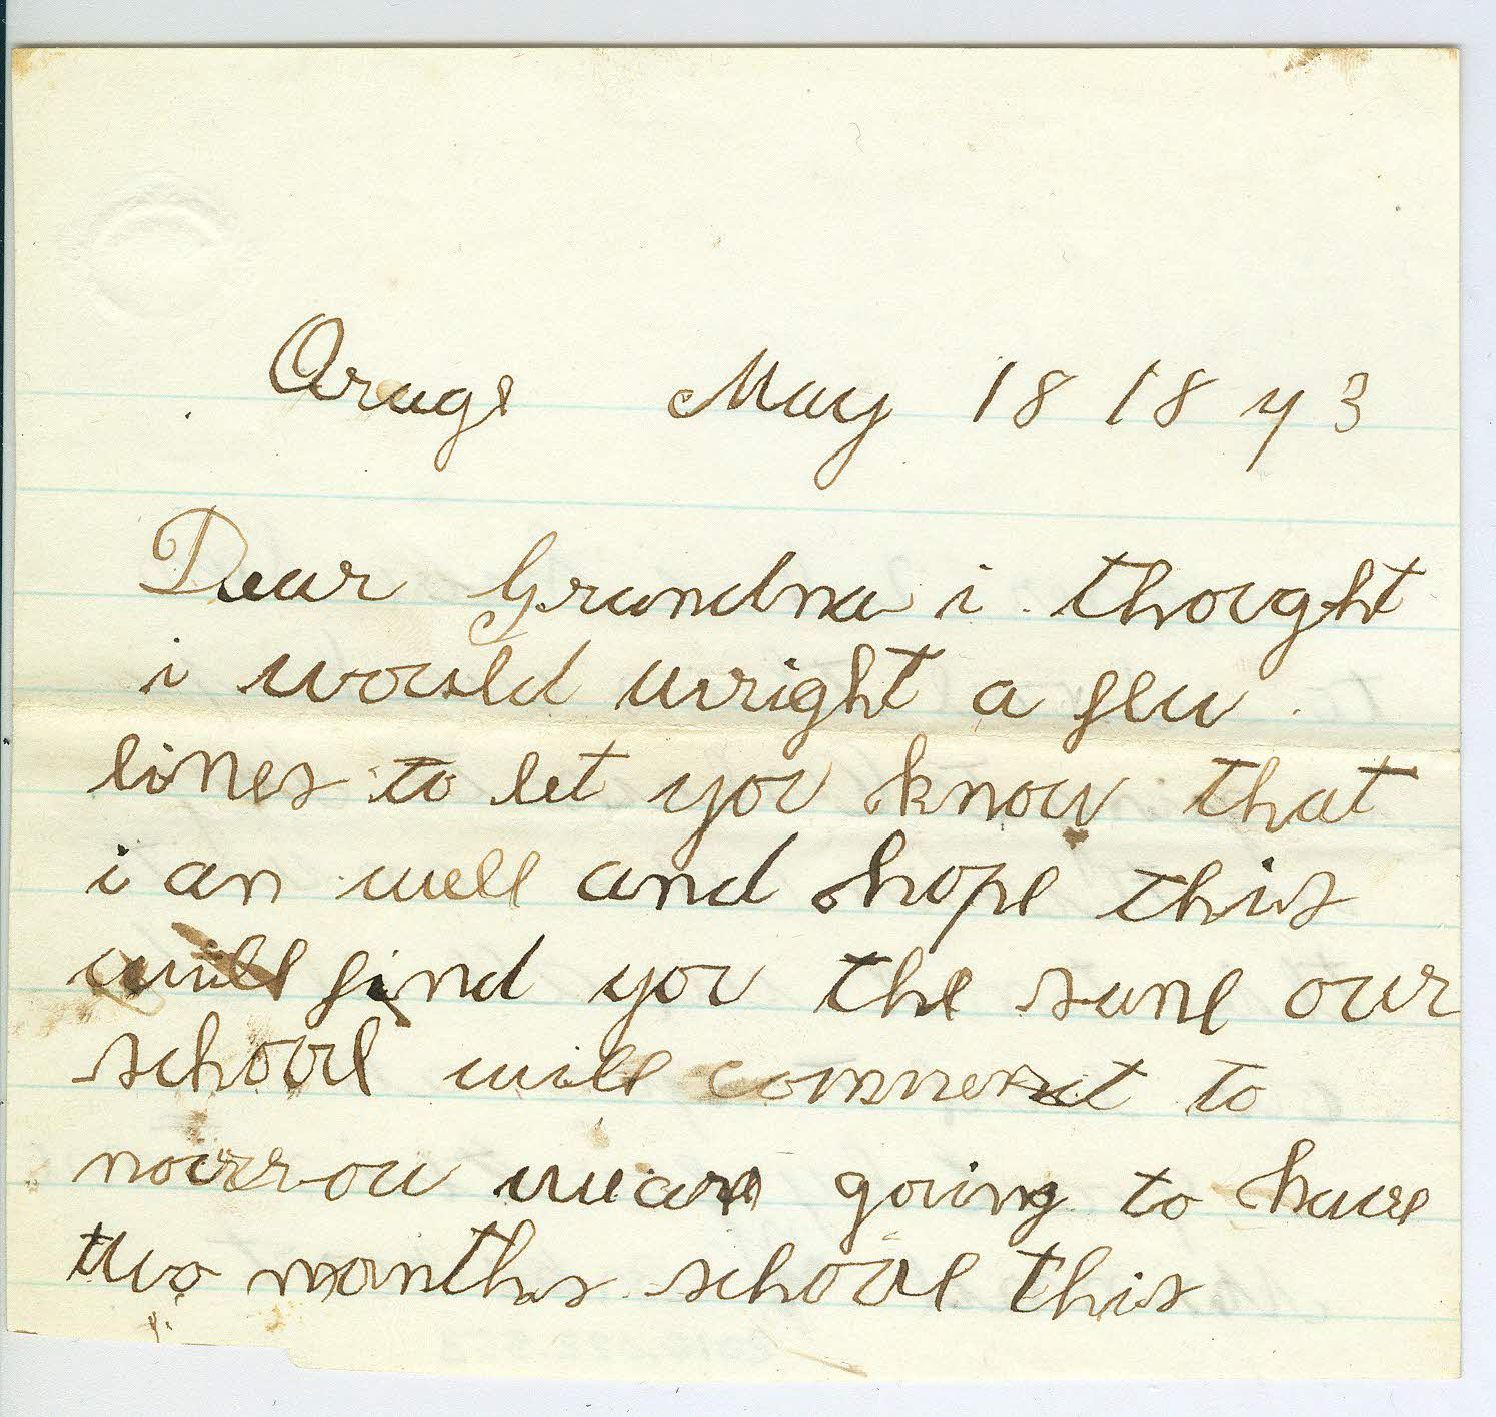 Orage May 18 1873
Dear Grandma i thought
i would wright a few
lines to let you know that
i am well and hope this
will find you the same our
school will comment to
morrow we are going to have
two months school this